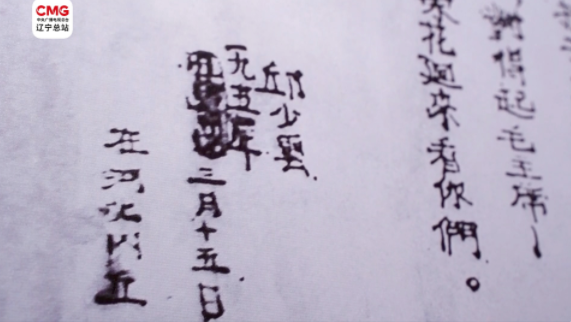 CMG
中央广播电视总台
辽宁总站
對得起毛主席！
花迴來看你們。
邱少雲
一九五一年
三月十五日
在河北内丘